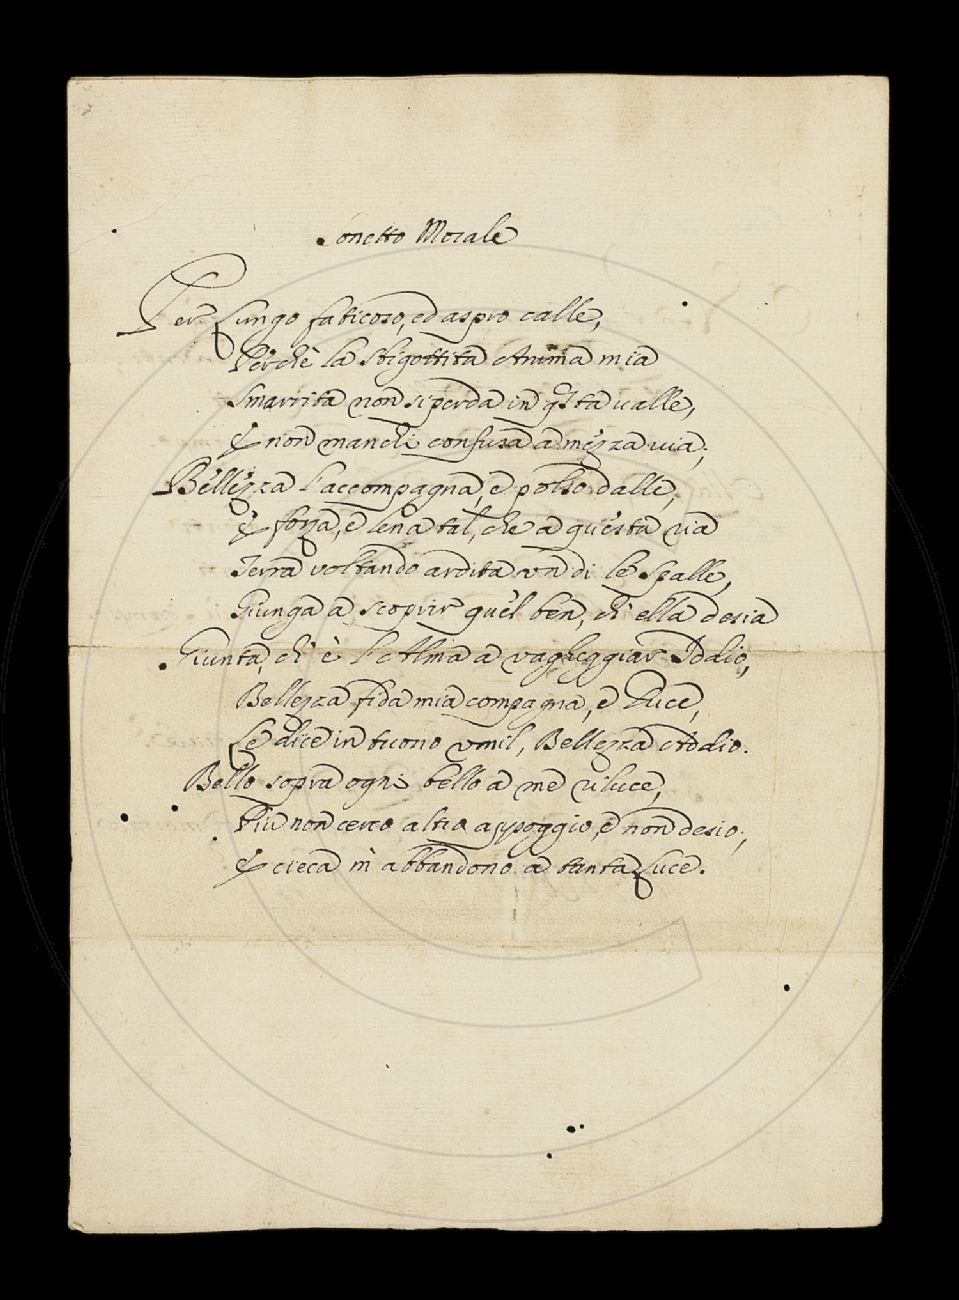 Sonetto Morale
Per Lungo faticoso, ed aspro calle,
Perchè la sbigottita Anima mia
Smarrita non si perda in qsta valle,
E non manchi confusa a mezza via;
Bellezza l'accompagna, e polso dalle,
E forza, e lena tal, che a questa ria
Terra voltando ardita un di le spalle,
Giunga a scoprir quel ben, ch'ella desia
Giunta, ch'è l'Alma a vagheggiar Iddio,
Bellezza fida mia compagna, e Duce,
Le dice in tuono umil, Bellezza Addio.
Bello sopra ogni bello a me riluce,
Più non cerco altro appoggio, e non desio;
E cieca m'abbandono a tanta Luce.